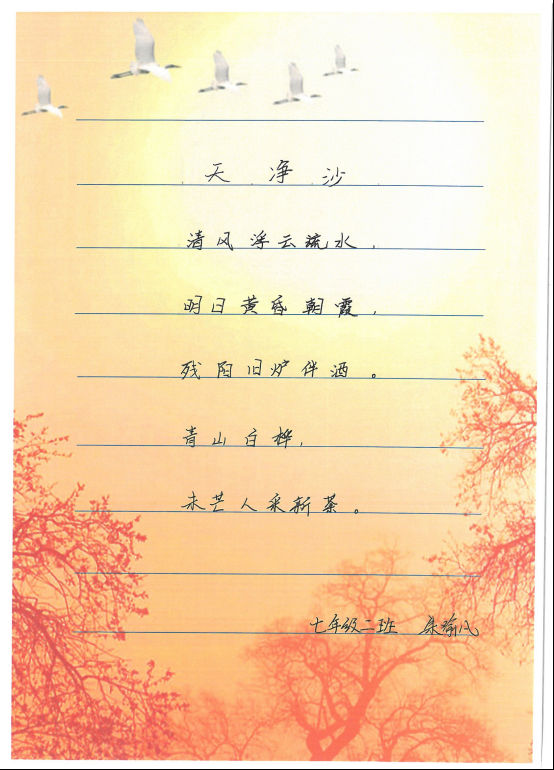 天净沙
清风浮云疏水，
明日黄昏朝霞，
残阳旧炉伴酒。
青山白桦，
未芒人采新茶。
七年级二班 朱瑜凡